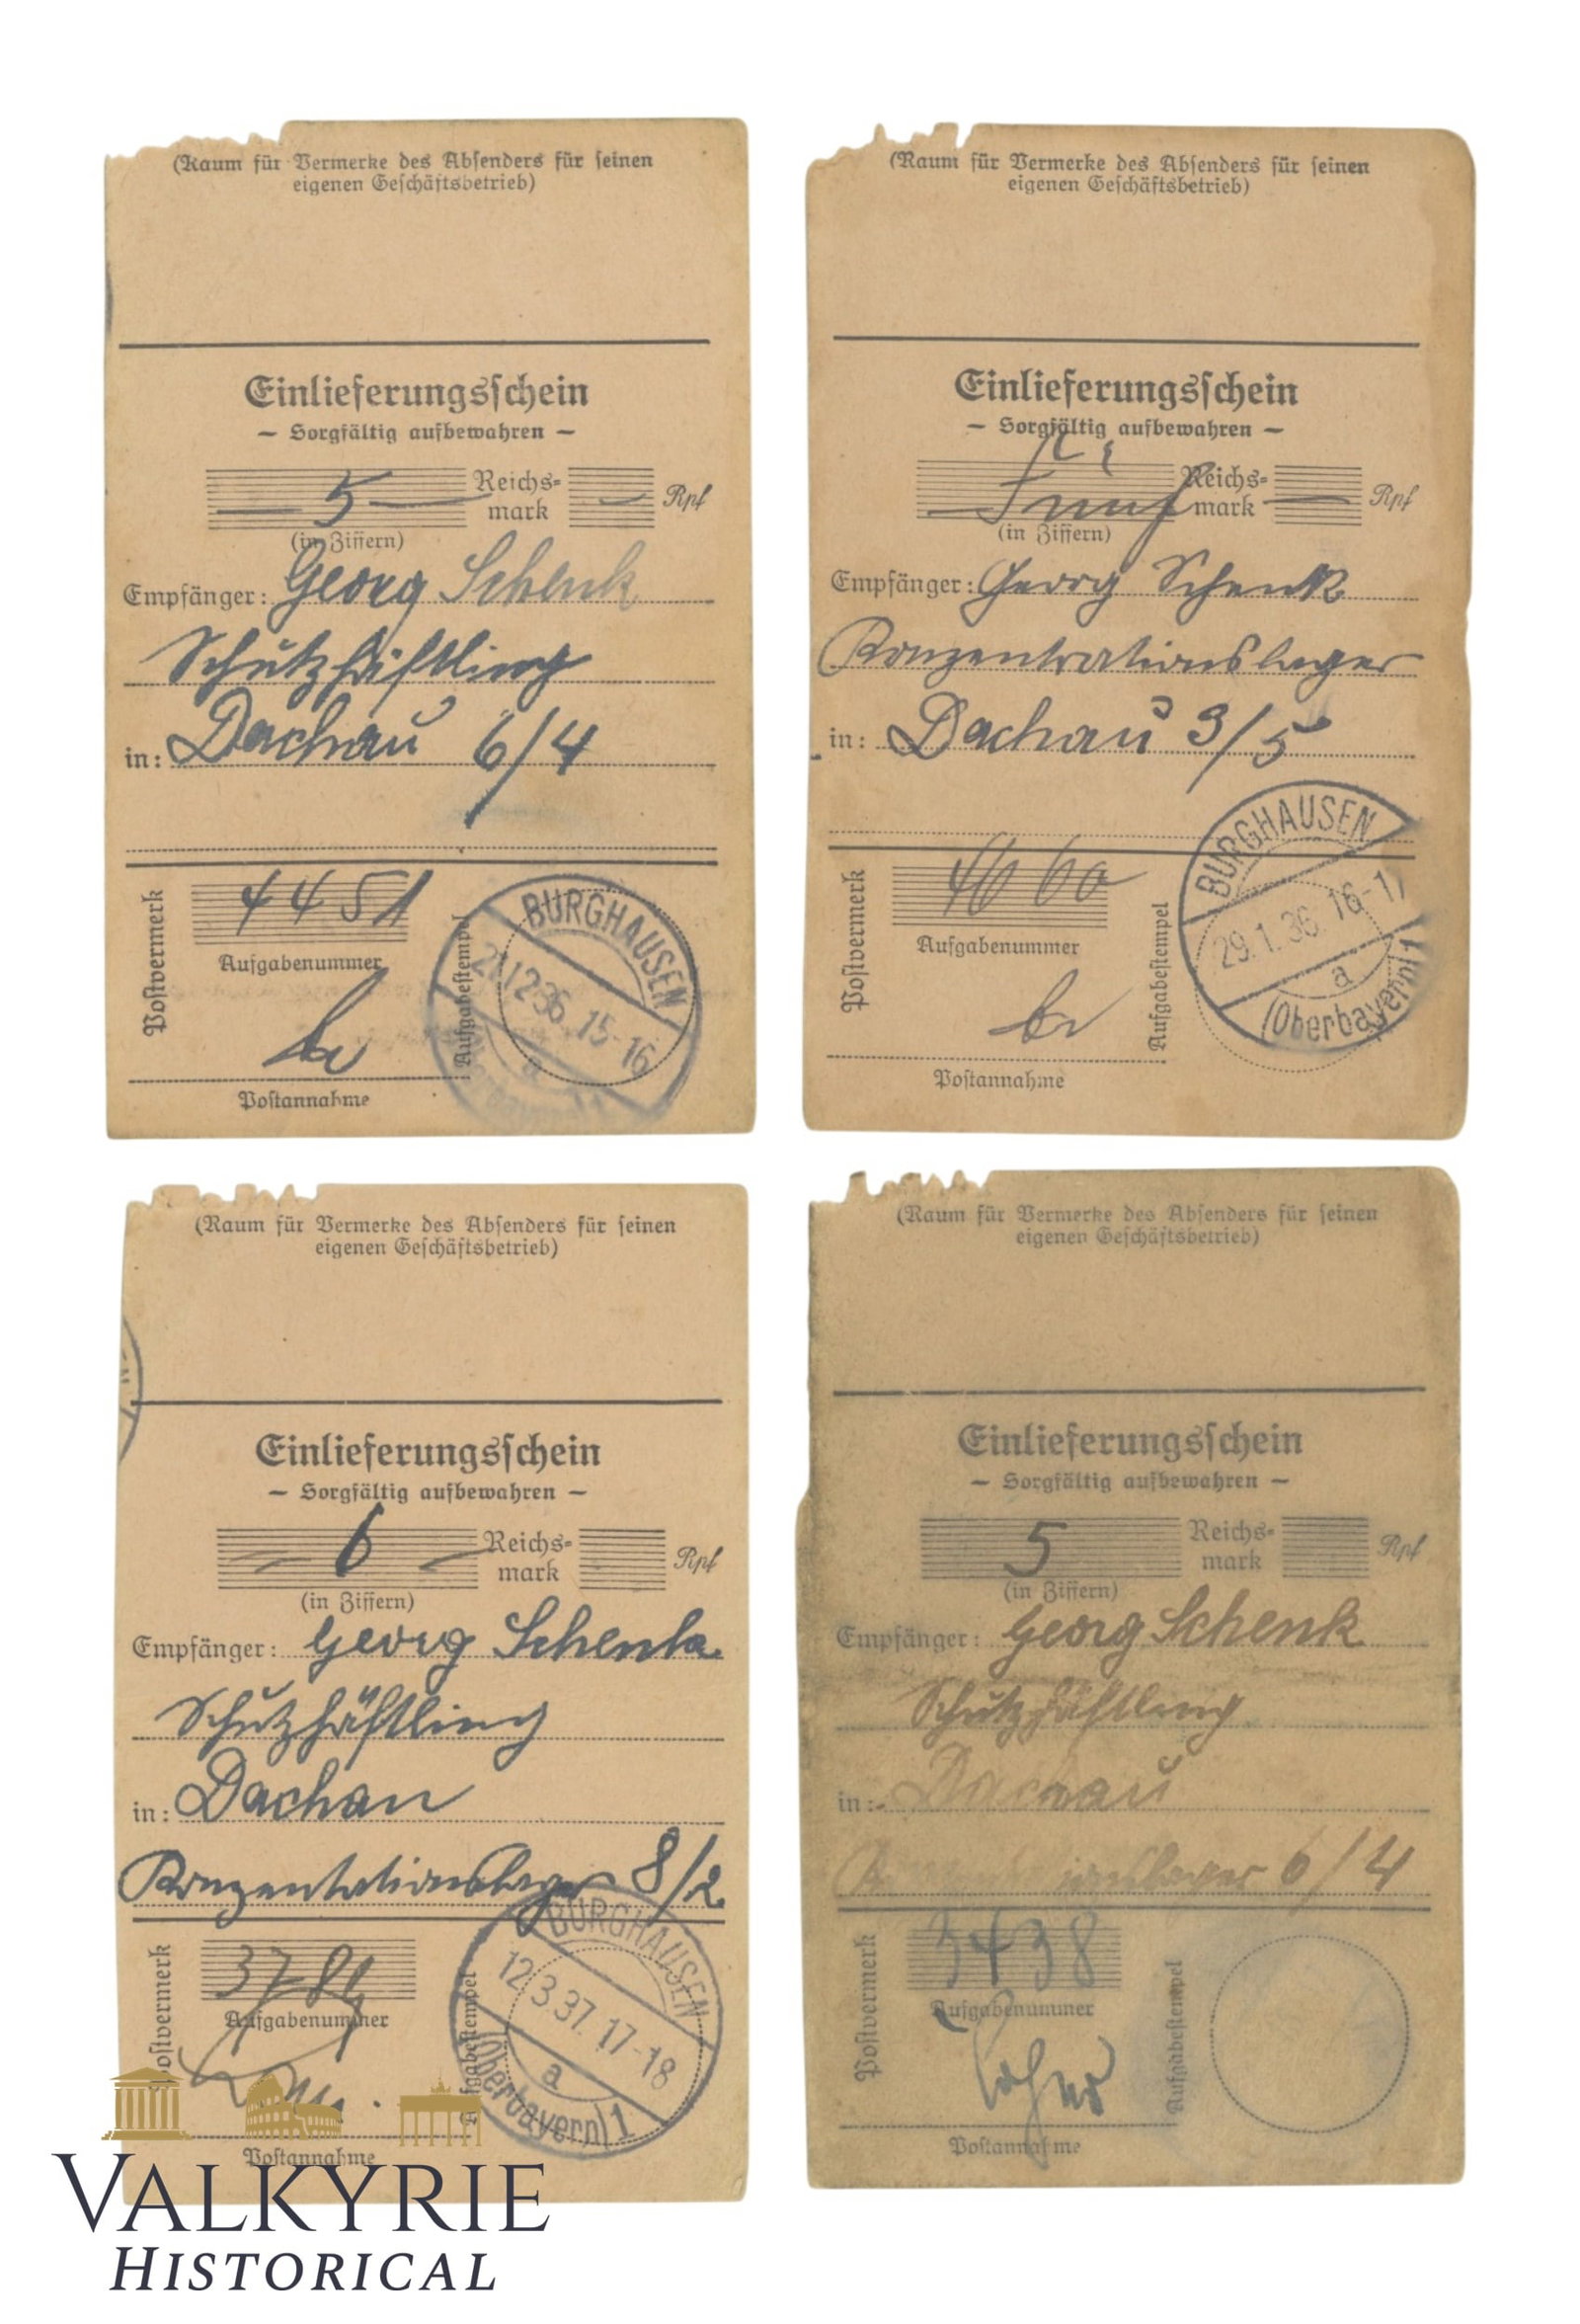 (Raum für Vermerke des Absenders für seinen
eigenen Geschäftsbetrieb)
Einlieferungsschein
— Sorgfältig aufbewahren —
— 5 — Reichs-
mark — Rpf
(in Ziffern)
Empfänger: Georg Schenk
Schutzhäftling
in: Dachau 6/4
Postvermerk
4451
Aufgabenummer
Aufgabestempel
BURGHAUSEN
12 36 15-16
a
Postannahme
(Raum für Vermerke des Absenders für seinen
eigenen Geschäftsbetrieb)
Einlieferungsschein
— Sorgfältig aufbewahren —
— Fünf Reichs-
mark — Rpf
(in Ziffern)
Empfänger: Georg Schenk
Konzentrationslager
in: Dachau 3/5
Postvermerk
4660
Aufgabenummer
Aufgabestempel
BURGHAUSEN
29.1.36. 16-17
a
(Oberbayern) 1
Postannahme
(Raum für Vermerke des Absenders für seinen
eigenen Geschäftsbetrieb)
Einlieferungsschein
— Sorgfältig aufbewahren —
— 6 — Reichs-
mark Rpf
(in Ziffern)
Empfänger: Georg Schenk
Schutzhäftling
in: Dachau
Konzentationslager 8/2
Postvermerk
3784
Aufgabenummer
Aufgabestempel
BURGHAUSEN
12.3.37. 17-18
a
(Oberbayern) 1
Postannahme
(Raum für Vermerke des Absenders für seinen
eigenen Geschäftsbetrieb)
Einlieferungsschein
— Sorgfältig aufbewahren —
5 Reichs-
mark Rpf
(in Ziffern)
Empfänger: Georg Schenk
Schutzhäftling
in: Dachau
6/4
Postvermerk
3438
Aufgabenummer
Aufgabestempel
Postannahme
VALKYRIE
HISTORICAL